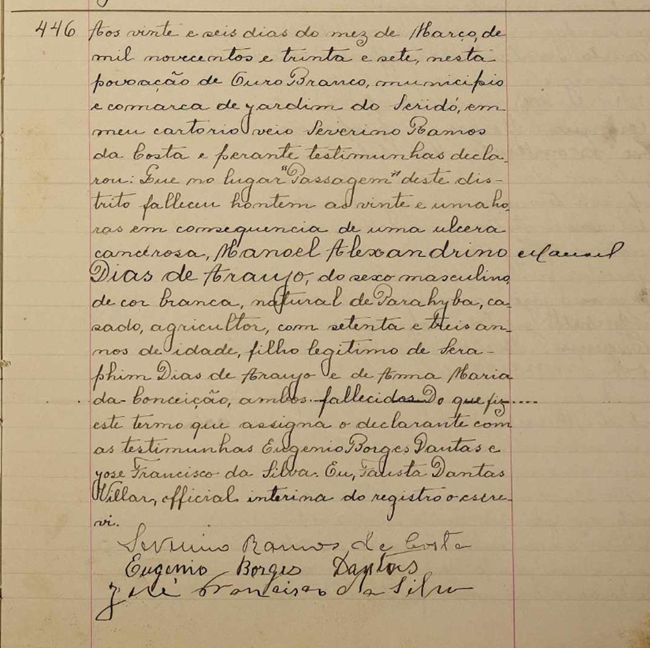 446 Aos vinte e seis dias do mez de Março, de
mil novecentos e trinta e sete, nesta
povoação de Ouro Branco, municipio
e comarca de Jardim do Seridó, em
meu cartorio veio Severino Ramos
da Costa e perante testimunhas decla-
rou: Que no lugar "Passagem" deste dis-
trito falleceu hontem as vinte e uma ho-
ras em consequencia de uma ulcera
cancérosa, Manoel Alexandrino Manoel
Dias de Araujo, do sexo masculino,
de cor branca, natural de Parahyba, ca-
sado, agricultor, com setenta e treis an-
nos de idade, filho legitimo de Sera-
phim Dias de Araujo e de Anna Maria
da Conceição, ambos fallecidos Do que fiz
este termo que assigna o declarante com
as testimunhas Eugenio Borges Dantas e
José Francisco da Silva. Eu, Fausta Dantas
Villar, official interina do registro o escre-
vi.
Severino Ramos de Costa
Eugenio Borges Dantas
José Francisco da Silva